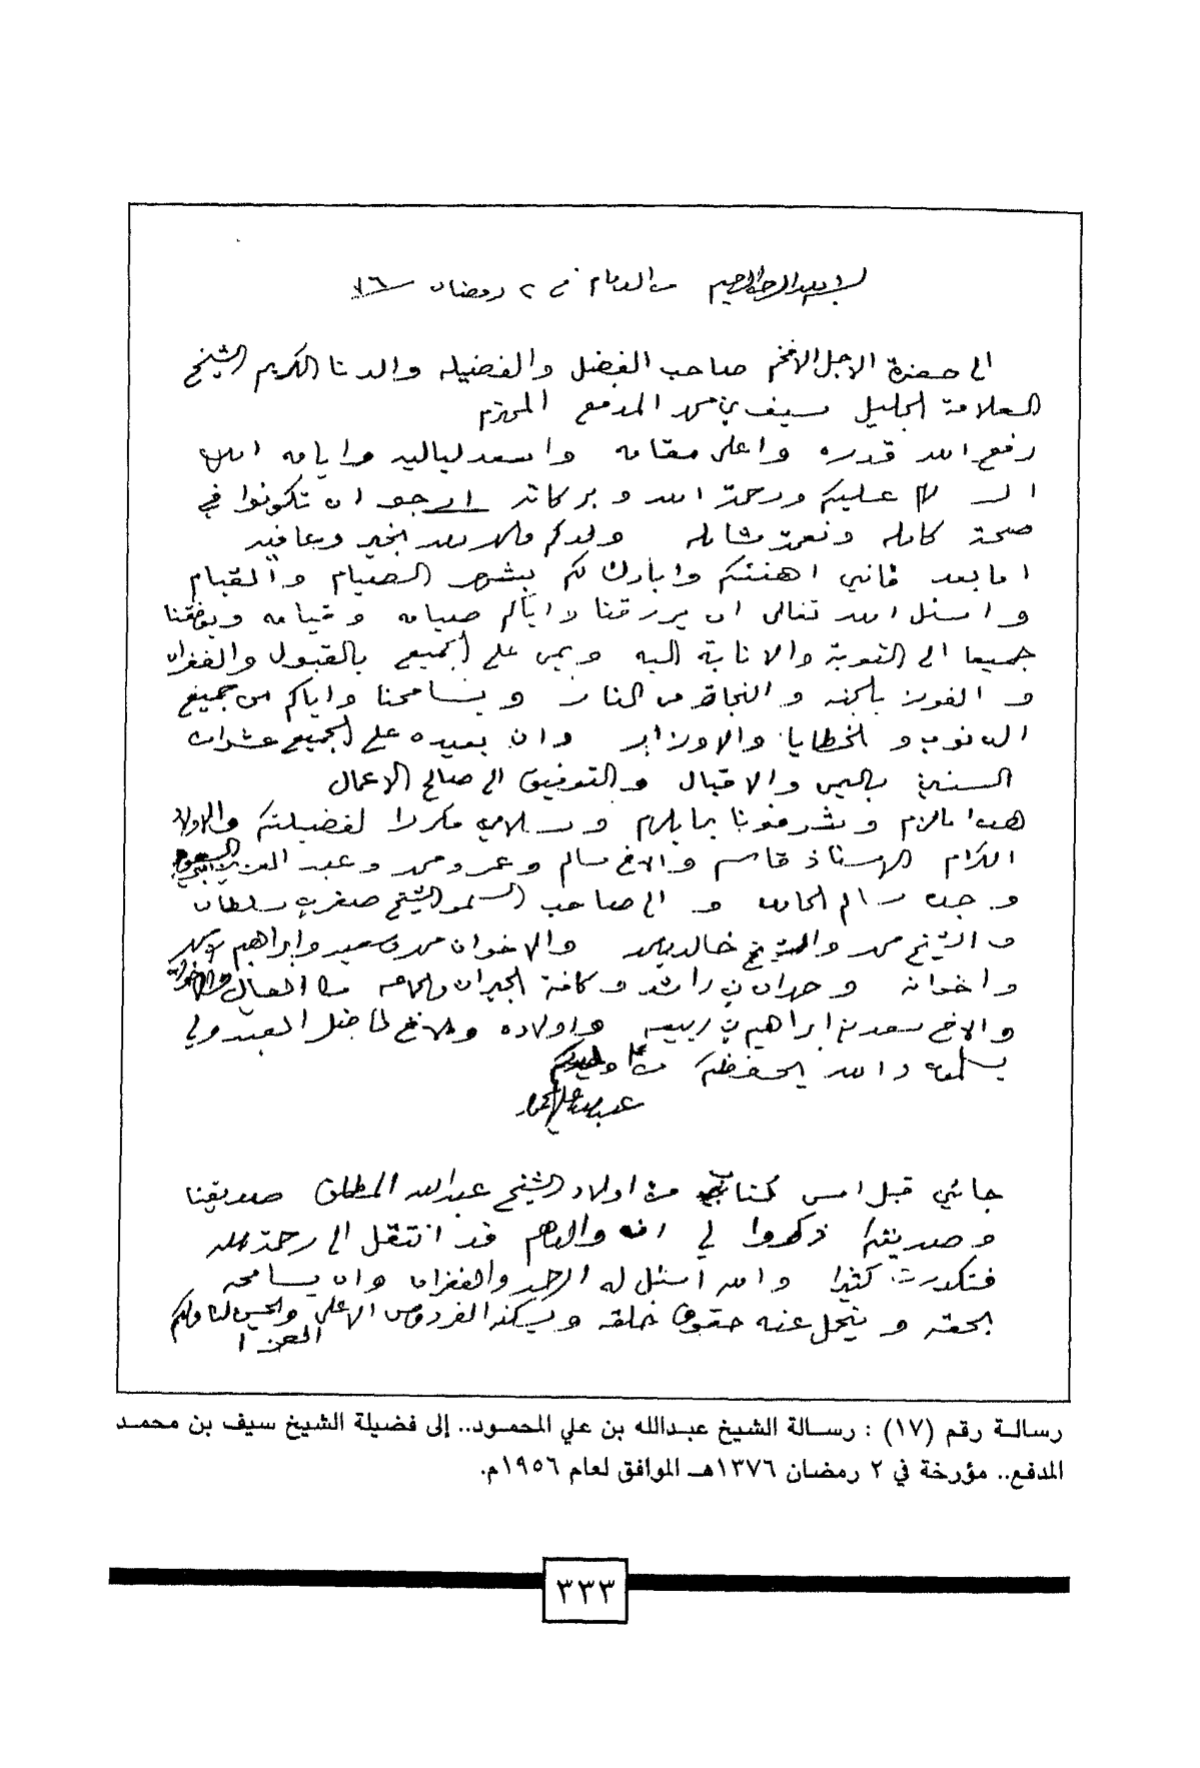 بسم الله الرحمن الرحيم من الدمام في ٢ رمضان سنة ٧٦
الى حضرة الاجل الافخم صاحب الفضل والفضيله والدنا الكريم الشيخ
العلامة الجليل سيف بن محمد المدفع المحترم
رفع الله قدره واعلى مقامه واسعد لياليه وايامه امين
السلام عليكم ورحمة الله وبركاته ارجو ان تكونوا في
صحة كامله ونعمة شامله ولدكم ولله الحمد بخير وعافيه
اما بعد فاني اهنئكم وابارك لكم بشهر الصيام والقيام
واسئل الله تعالى ان يرزقنا واياكم صيامه وقيامه ويوفقنا
جميعا الى التوبة والانابة اليه ويمن على الجميع بالقبول والغفران
والفوز بالجنه والنجاة من النار ويسامحنا واياكم من جميع
الذنوب والخطايا والاوزار وان يعيده على الجميع عشرات
السنين باليمن والاقبال والتوفيق الى صالح الاعمال
هذا مالزم وتشرفونا بما يلزم وسلامي مكررا لفضيلتكم والاولاد
الكرام الاستاذ قاسم والاخ سالم وعمر ومحمد وعبد العزيز
و سالم و الى صاحب السمو الشيخ صقر بن سلطان
والشيخ محمد والشيخ خالد والاخوان محمد وابراهيم
واخوانه وحمدان بن راشد وكافة الجيران منا العيال والاخوان
والاخ سعد بن ابراهيم بن ربيعه واولاده والاخ فاضل
يسلمون والله يحفظكم ولدكم
عبدالله بن علي المحمود
جائني قبل امس كتاب من اولاد الشيخ عبدالله المطلق صديقنا
وصديقكم ذكروا لي ان والدهم قد انتقل الى رحمة الله
فتكدرت كثيرا والله اسئل له الرحمة والغفران وان يسامحه
بحقه ويتحمل عنه حقوق خلقه ويسكنه الفردوس الاعلى ويحسن لنا ولكم
العزا
رسالة رقم (١٧) : رسالة الشيخ عبدالله بن علي المحمود.. إلى فضيلة الشيخ سيف بن محمد
المدفع.. مؤرخة في ٢ رمضان ١٣٧٦هـ الموافق لعام ١٩٥٦م.
٣٣٣